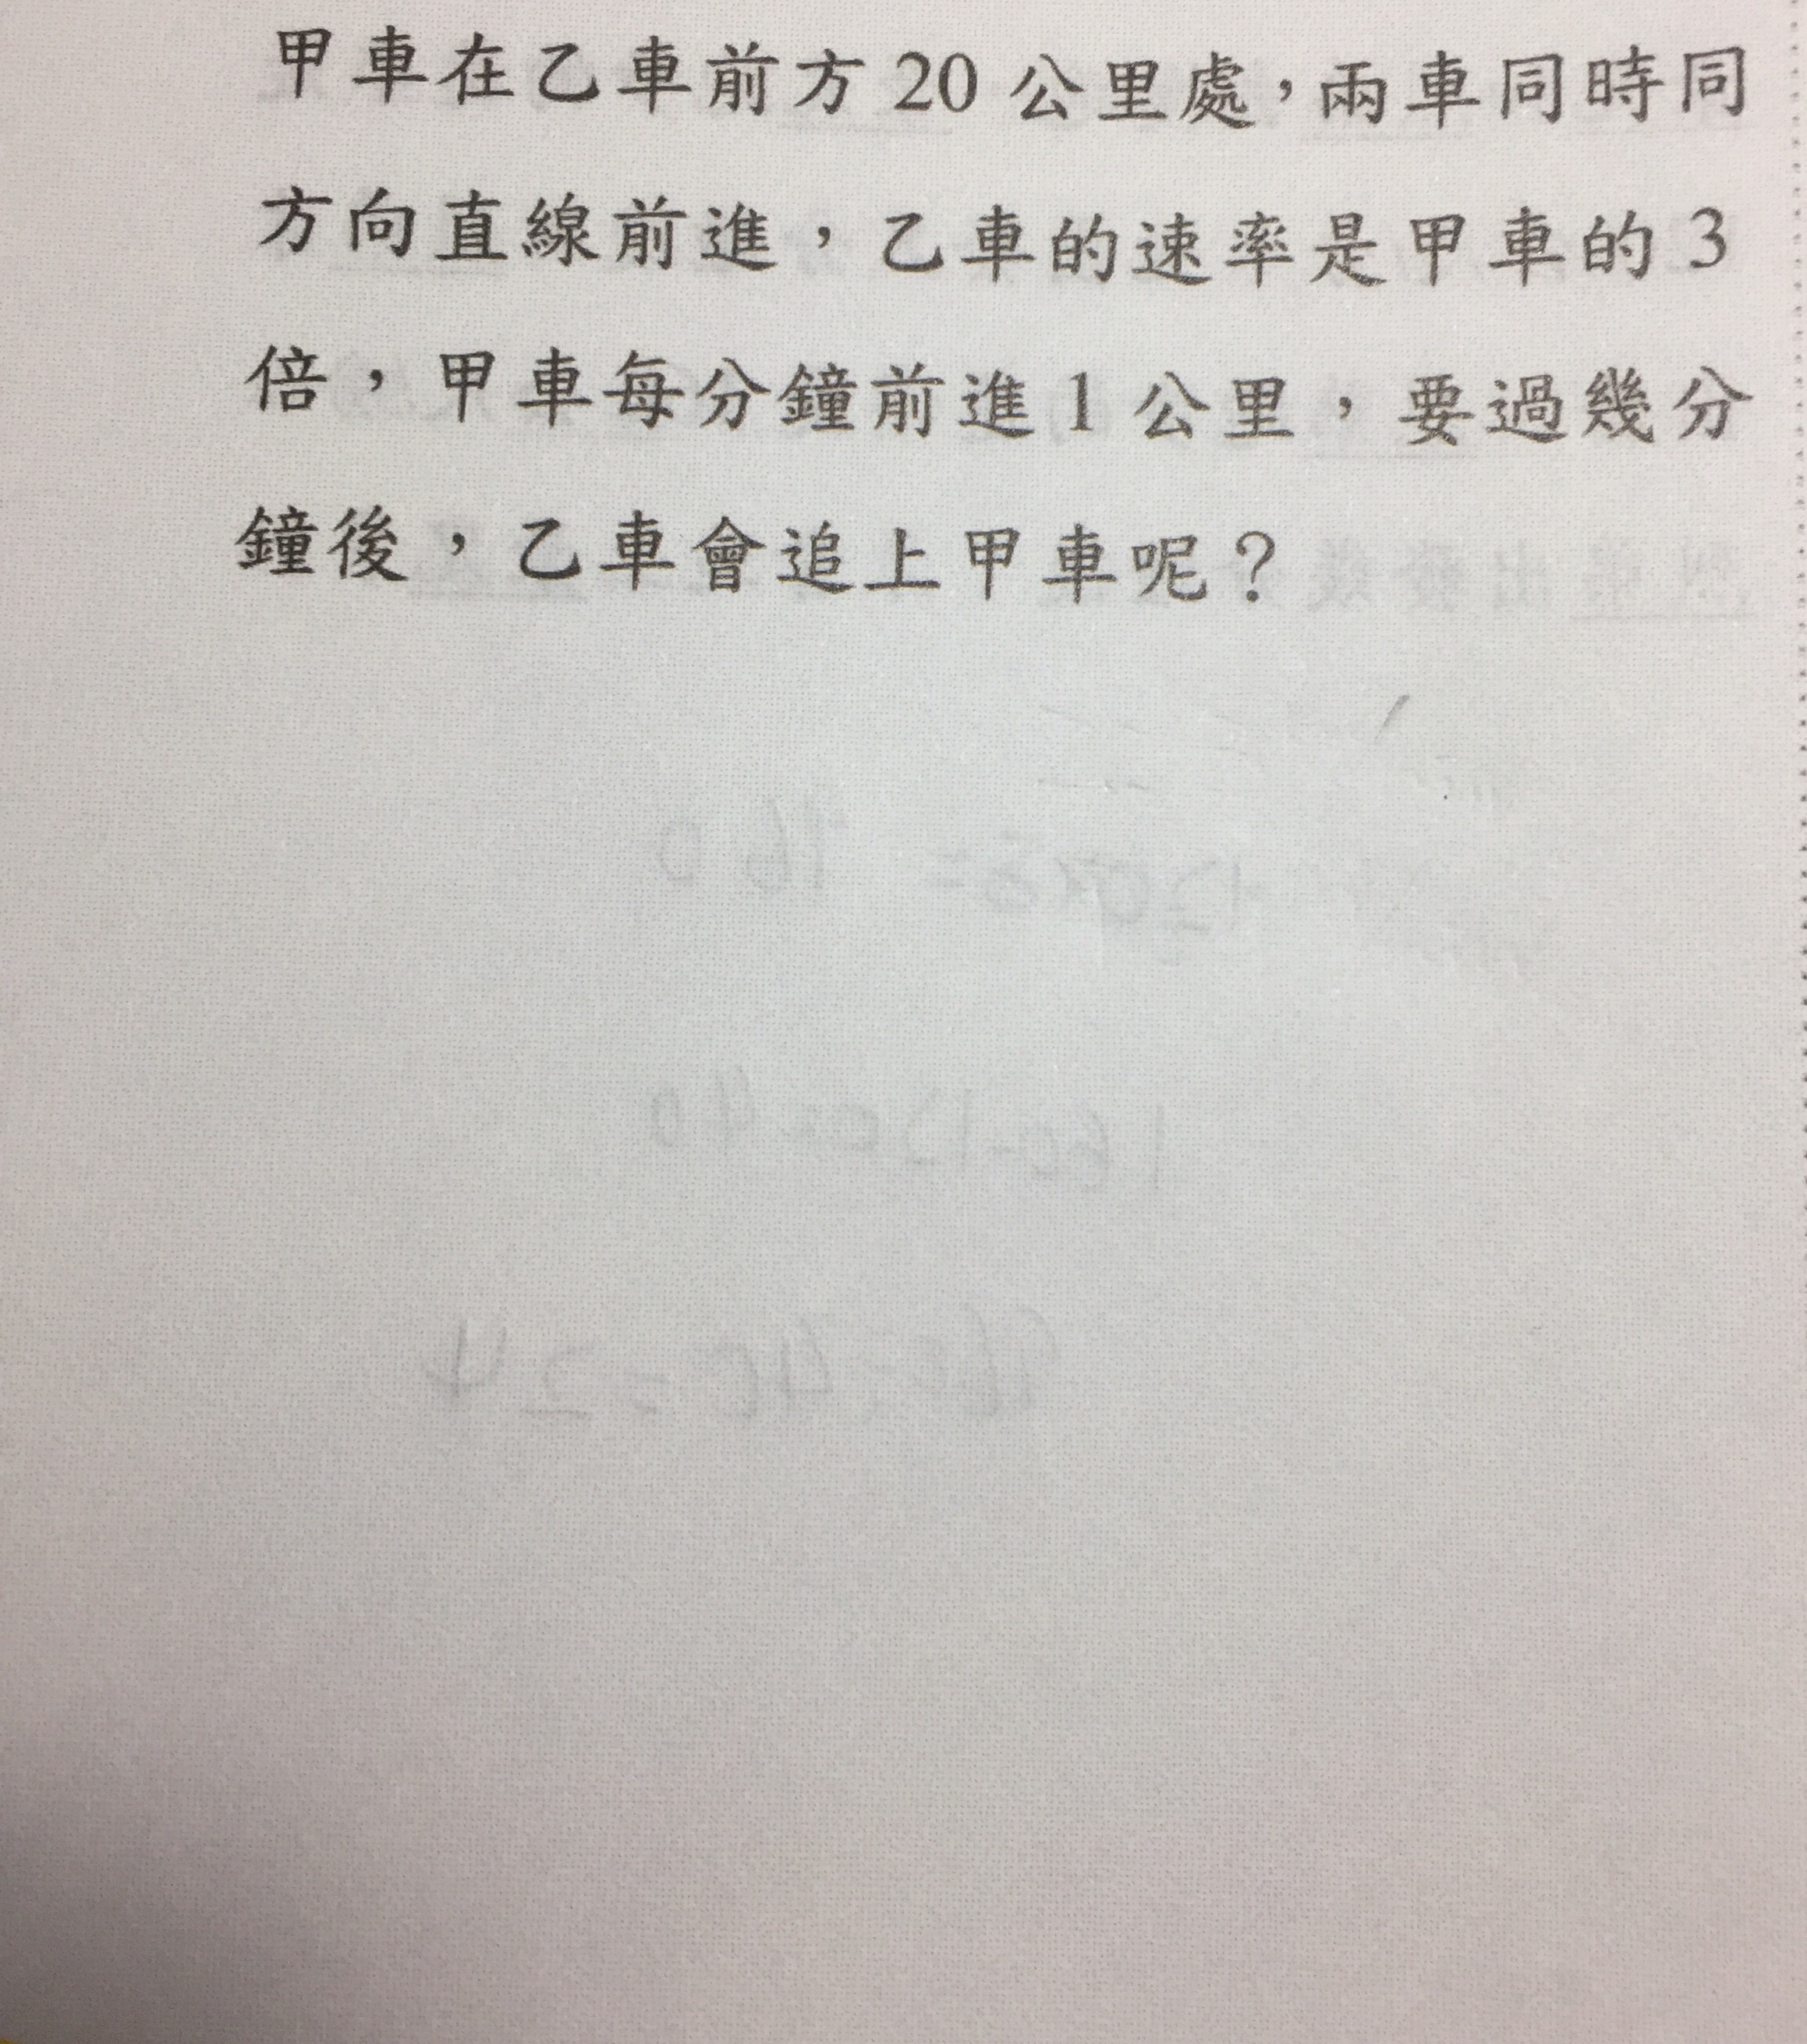 甲車在乙車前方 20 公里處，兩車同時同
方向直線前進，乙車的速率是甲車的 3
倍，甲車每分鐘前進 1 公里，要過幾分
鐘後，乙車會追上甲車呢？